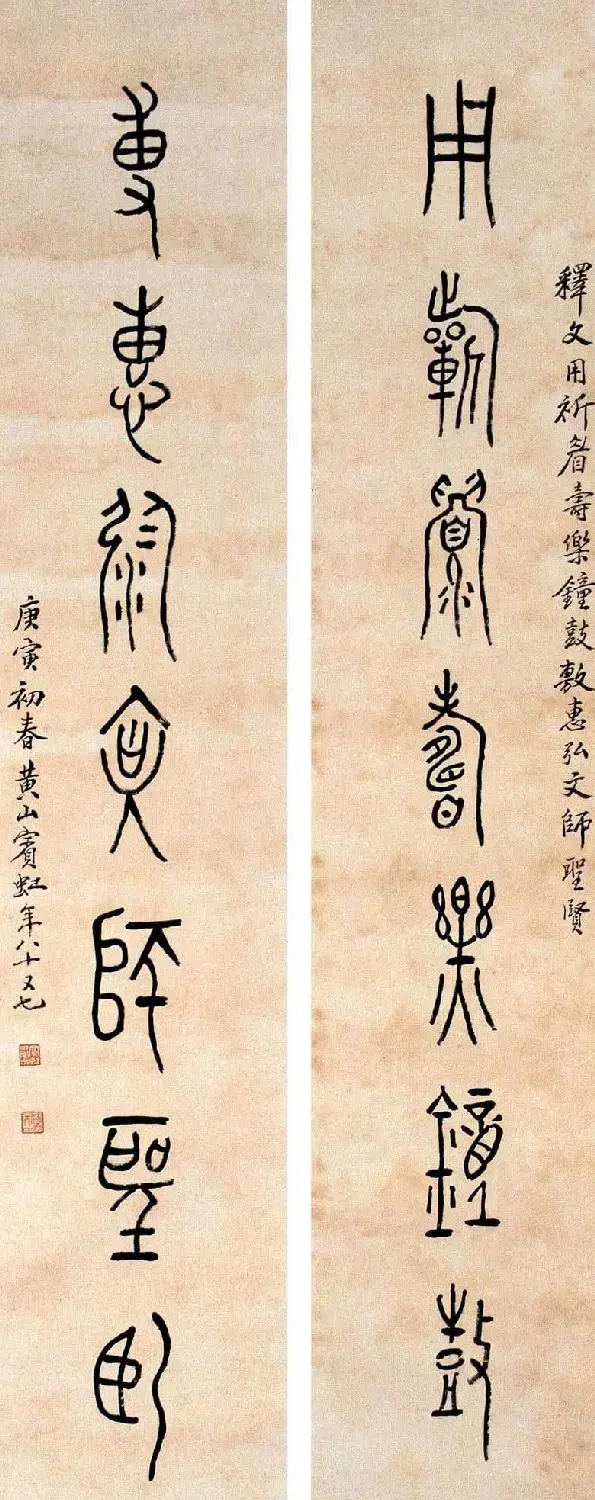 釋文用祈眉壽樂鐘鼓敷惠弘文師聖賢
用祈眉壽樂鐘鼓
敷惠弘文師聖賢
庚寅初春黃山賓虹年八十又七